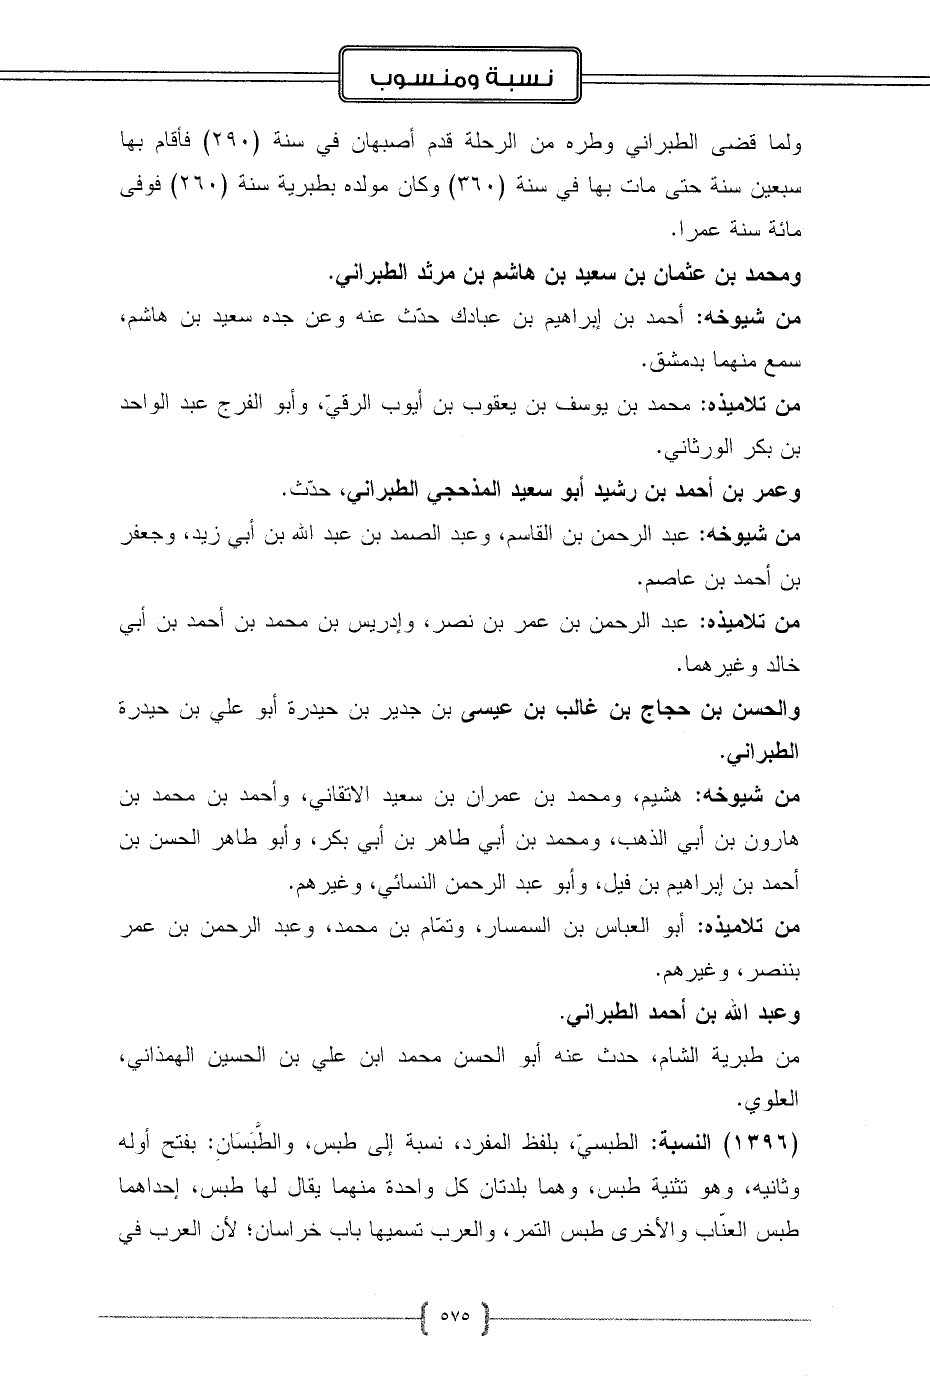 نسبة ومنسوب
ولما قضى الطبراني وطره من الرحلة قدم أصبهان في سنة (٢٩٠) فأقام بها
سبعين سنة حتى مات بها في سنة (٣٦٠) وكان مولده بطبرية سنة (٢٦٠) فوفى
مائة سنة عمرا.
ومحمد بن عثمان بن سعيد بن هاشم بن مرثد الطبراني.
من شيوخه: أحمد بن إبراهيم بن عبادك حدّث عنه وعن جده سعيد بن هاشم،
سمع منهما بدمشق.
من تلاميذه: محمد بن يوسف بن يعقوب بن أيوب الرقيّ، وأبو الفرج عبد الواحد
بن بكر الورثاني.
وعمر بن أحمد بن رشيد أبو سعيد المذحجي الطبراني، حدّث.
من شيوخه: عبد الرحمن بن القاسم، وعبد الصمد بن عبد الله بن أبي زيد، وجعفر
بن أحمد بن عاصم.
من تلاميذه: عبد الرحمن بن عمر بن نصر، وإدريس بن محمد بن أحمد بن أبي
خالد وغيرهما.
والحسن بن حجاج بن غالب بن عيسى بن جدير بن حيدرة أبو علي بن حيدرة
الطبراني.
من شيوخه: هشيم، ومحمد بن عمران بن سعيد الاتقاني، وأحمد بن محمد بن
هارون بن أبي الذهب، ومحمد بن أبي طاهر بن أبي بكر، وأبو طاهر الحسن بن
أحمد بن إبراهيم بن فيل، وأبو عبد الرحمن النسائي، وغيرهم.
من تلاميذه: أبو العباس بن السمسار، وتمّام بن محمد، وعبد الرحمن بن عمر
بننصر، وغيرهم.
وعبد الله بن أحمد الطبراني.
من طبرية الشام، حدث عنه أبو الحسن محمد ابن علي بن الحسين الهمذاني،
العلوي.
(١٣٩٦) النسبة: الطبسيّ، بلفظ المفرد، نسبة إلى طبس، والطَّبَسَان: بفتح أوله
وثانيه، وهو تثنية طبس، وهما بلدتان كل واحدة منهما يقال لها طبس، إحداهما
طبس العنّاب والأخرى طبس التمر، والعرب تسميها باب خراسان؛ لأن العرب في
٥٧٥